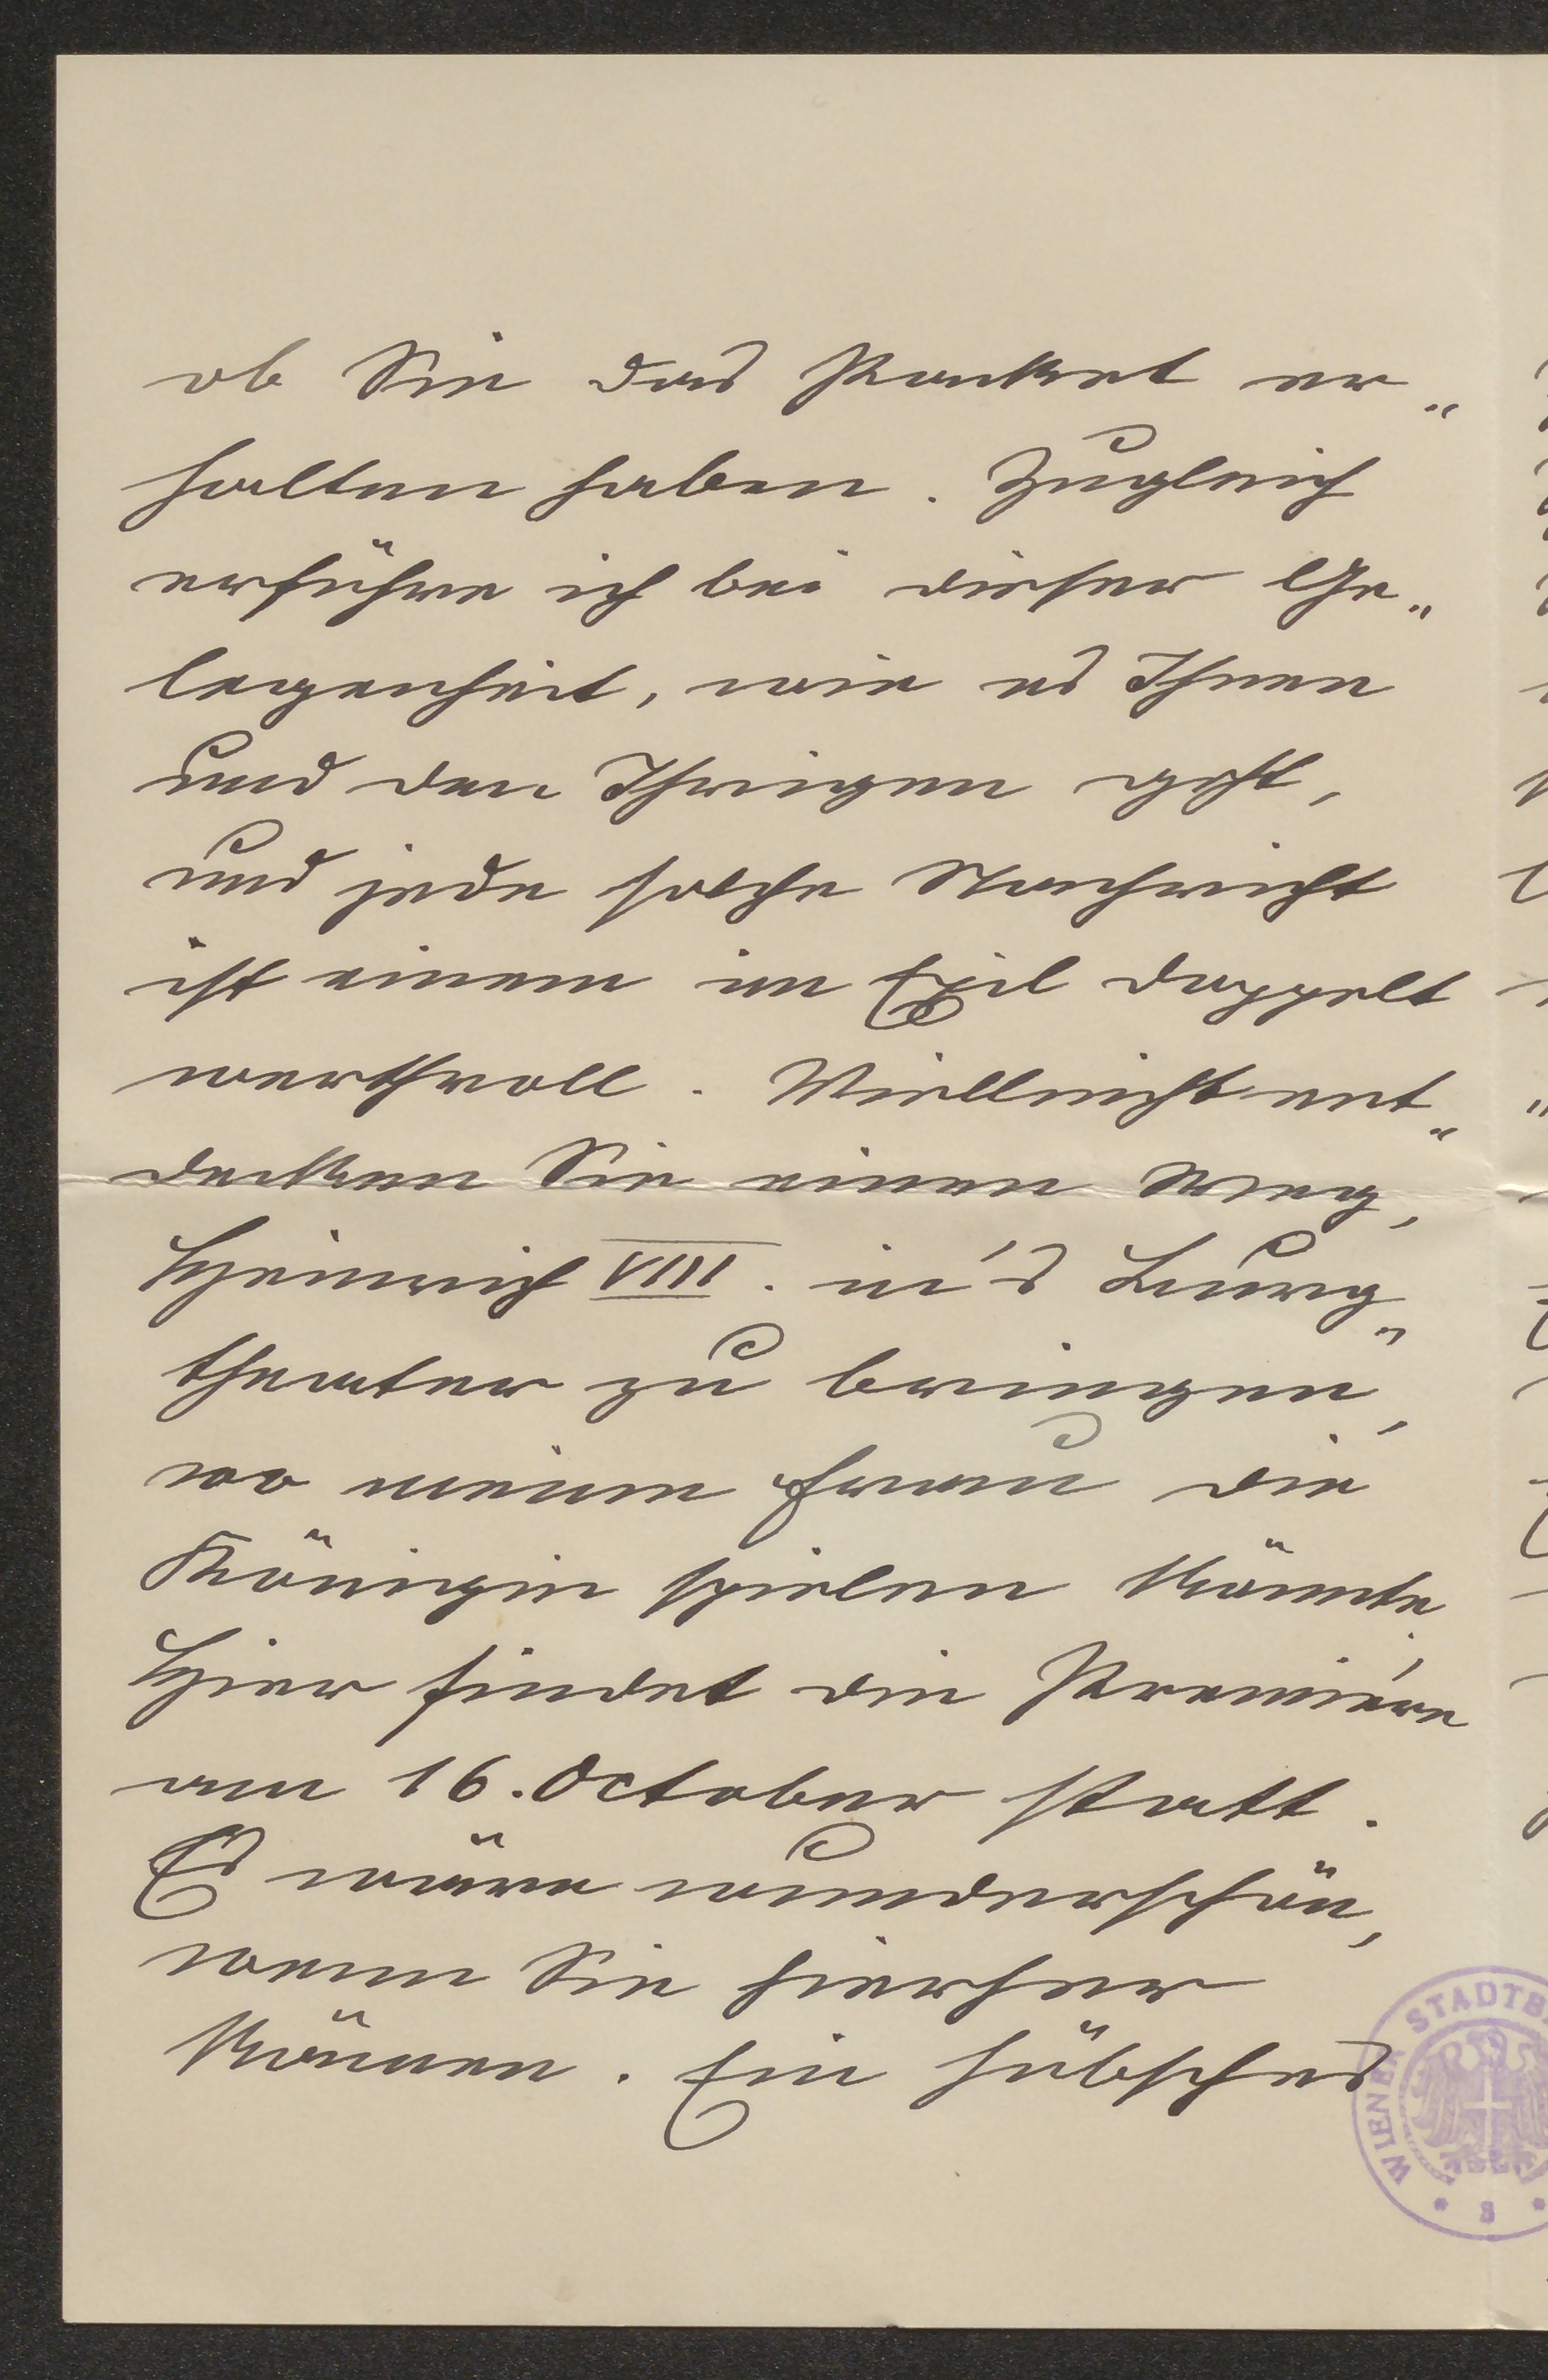 ob Sie das Packet er„
halten haben. Zugleich
erführe ich bei dieser Ge„
legenheit, wie es Ihnen
und den Ihrigen geht,
und jede solche Nachricht
ist einem im Exil doppelt
werthvoll. Vielleicht ent„
decken Sie einen Weg,
Heinrich VIII. in's Burg„
theater zu bringen,
wo meine Frau die
Königin spielen könnte.
Hier findet die Première
am 16. October statt.
Es wäre wunderschön,
wenn Sie hierher
können. Ein hübsches
WIENER STADTB